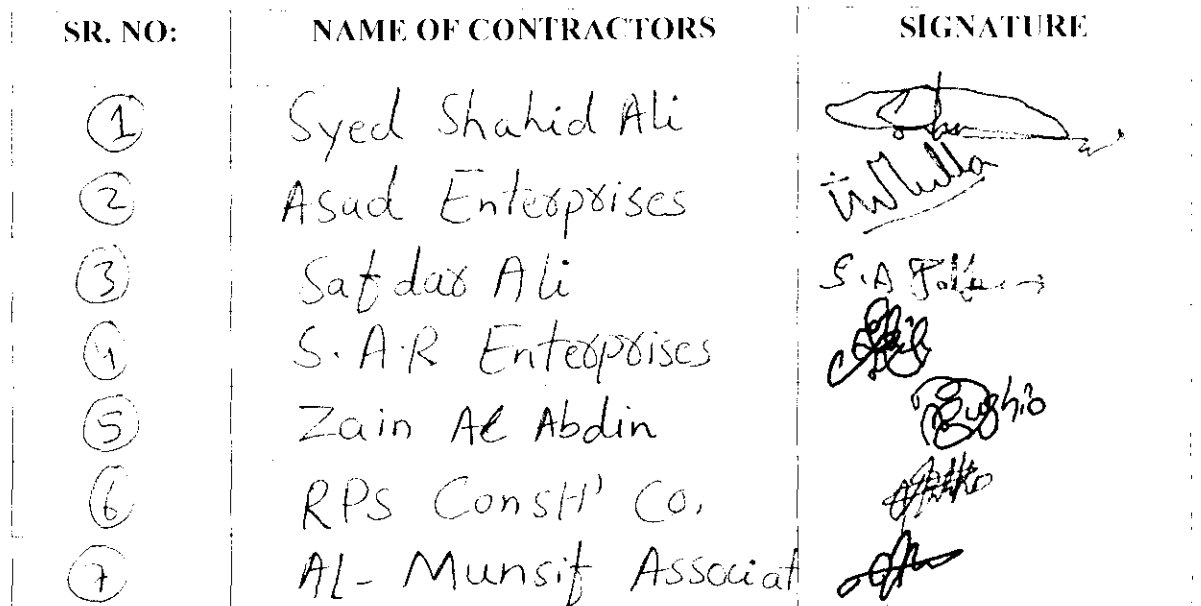 SR. NO: NAME OF CONTRACTORS SIGNATURE
1 Syed Shahid Ali
2 Asad Enterprises
3 Safdar Ali S.A
4 S.A.R Enterprises
5 Zain Al Abdin Bughio
6 RPS Constt' Co.
7 AL- Munsif Associat